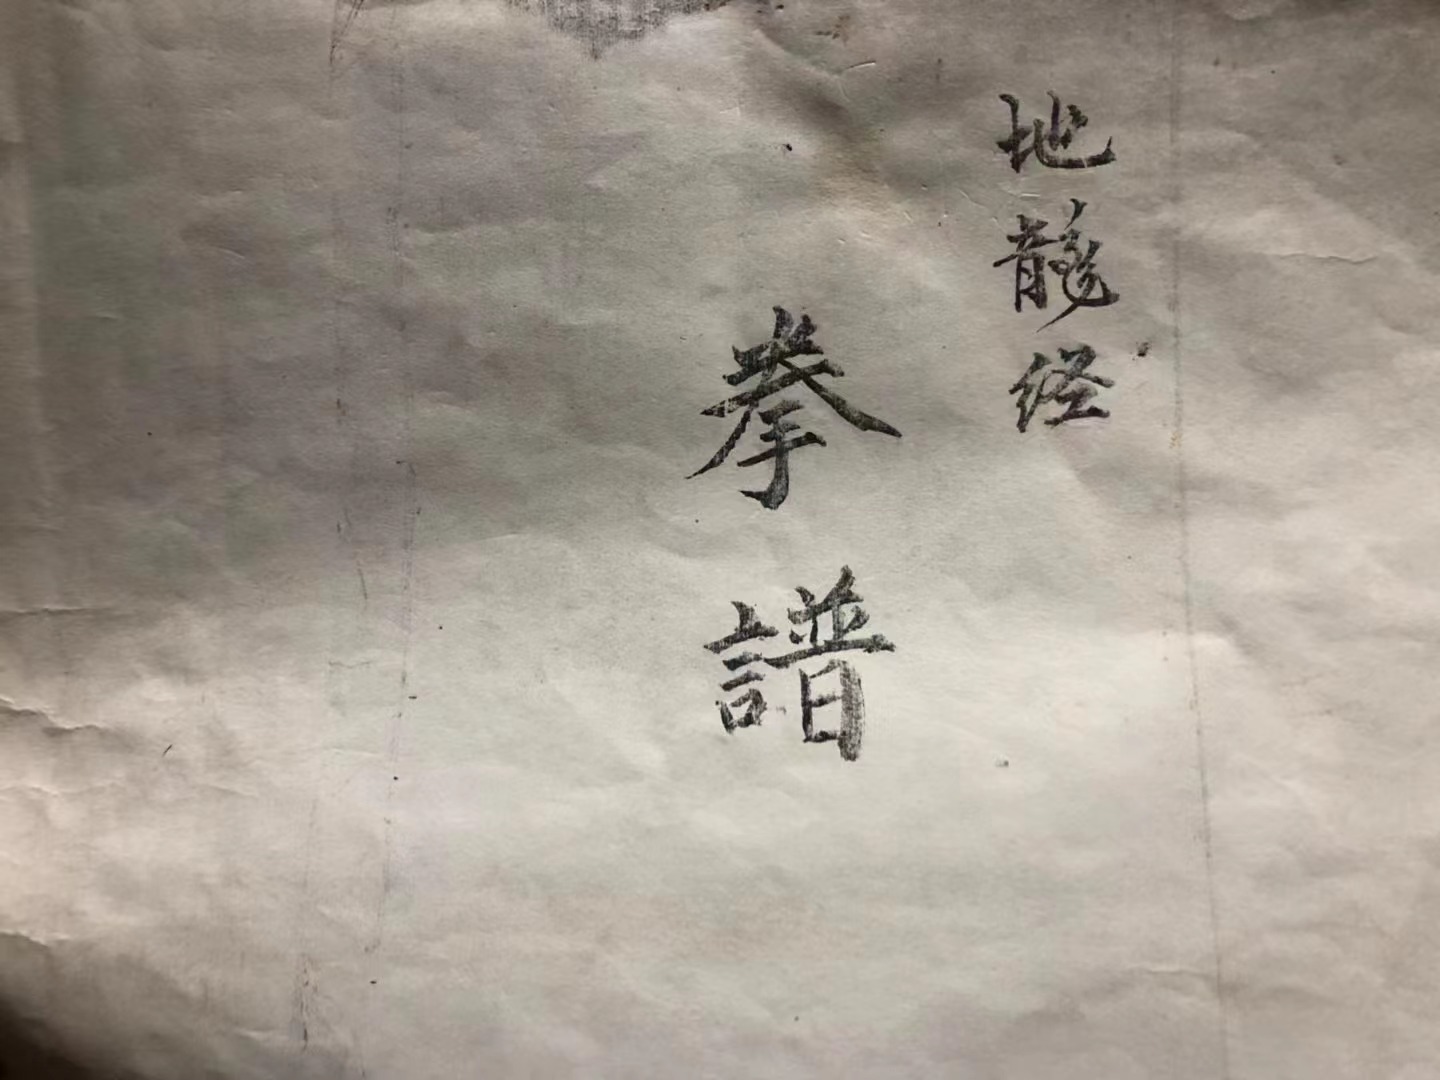 地龍经
拳譜